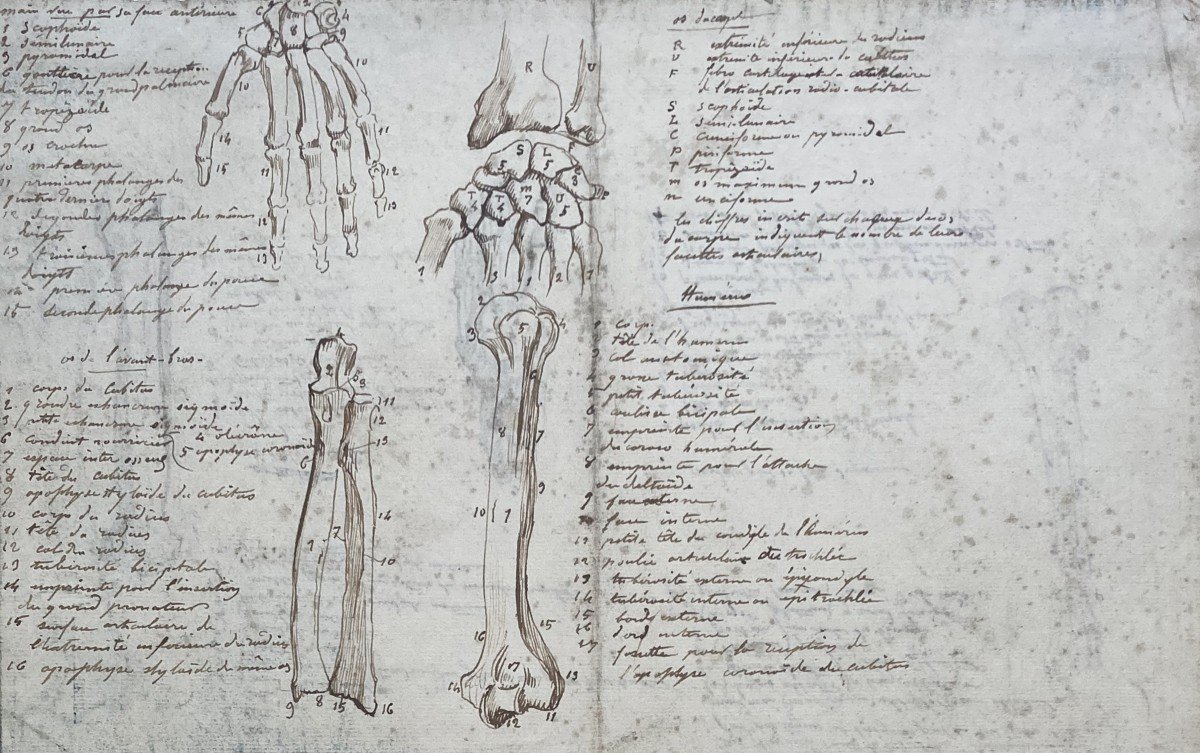 main vue par sa face antérieure
1 scaphoïde
2 semilunaire
3 pyramidal
6 gouttière pour la réception
du tendon du grand palmaire
7 trapézoïde
8 grand os
9 os crochu
10 metacarpe
11 premieres phalanges des
quatre dernier doigts
12 secondes phalanges des mêmes
doigts
13 troisièmes phalanges des mêmes
doigts
14 premiere phalange du pouce
15 seconde phalange du pouce
os de l'avant-bras-
1 corps du cubitus
2 grande echancrure sigmoïde
3 ptite echancrure sigmoïde
4 olécrâne
5 apophyse coronoïde
6 conduit nourricier
7 espace inter osseux
8 tête du cubitus
9 apophyse styloïde du cubitus
10 corps du radius
11 tête du radius
12 col du radius
13 tubérosité bicipitale
14 empreinte pour l'insertion
du grand pronateur
15 surface articulaire de
l'extremité inferieure du radius
16 apophyse styloïde du même os
os du carpe
R extrémité inférieure du radius
U extremité inferieure du cubitus
F fibro cartilage
de l'articulation radio-cubitale
S scaphoïde
L semilunaire
C cuneiforme ou pyramidal
P pisiforme
T trapézoïde
m os maximum grand os
n unciforme
les chiffres inscrit sur chaque des os
du carpe indiquent le nombre de leurs
facettes articulaires,
Humérus
corps
tête de l'humérus
3 col anatomique
4 grosse tubérosité
5 petit tubérosité
6 coulisse bicipitale
7 empreinte pour l'insertion
du coraco huméral
8 empreinte pour l'attache
du deltoïde
9 face externe
10 face interne
11 petite tête du condyle de l'humérus
12 poulie articulaire trochlée
13 tubérosité externe ou épicondyle
14 tubérosité interne ou épitrochlée
15 bord externe
16 bord interne
17 fossette pour la réception de
l'apophyse coronoïde du cubitus